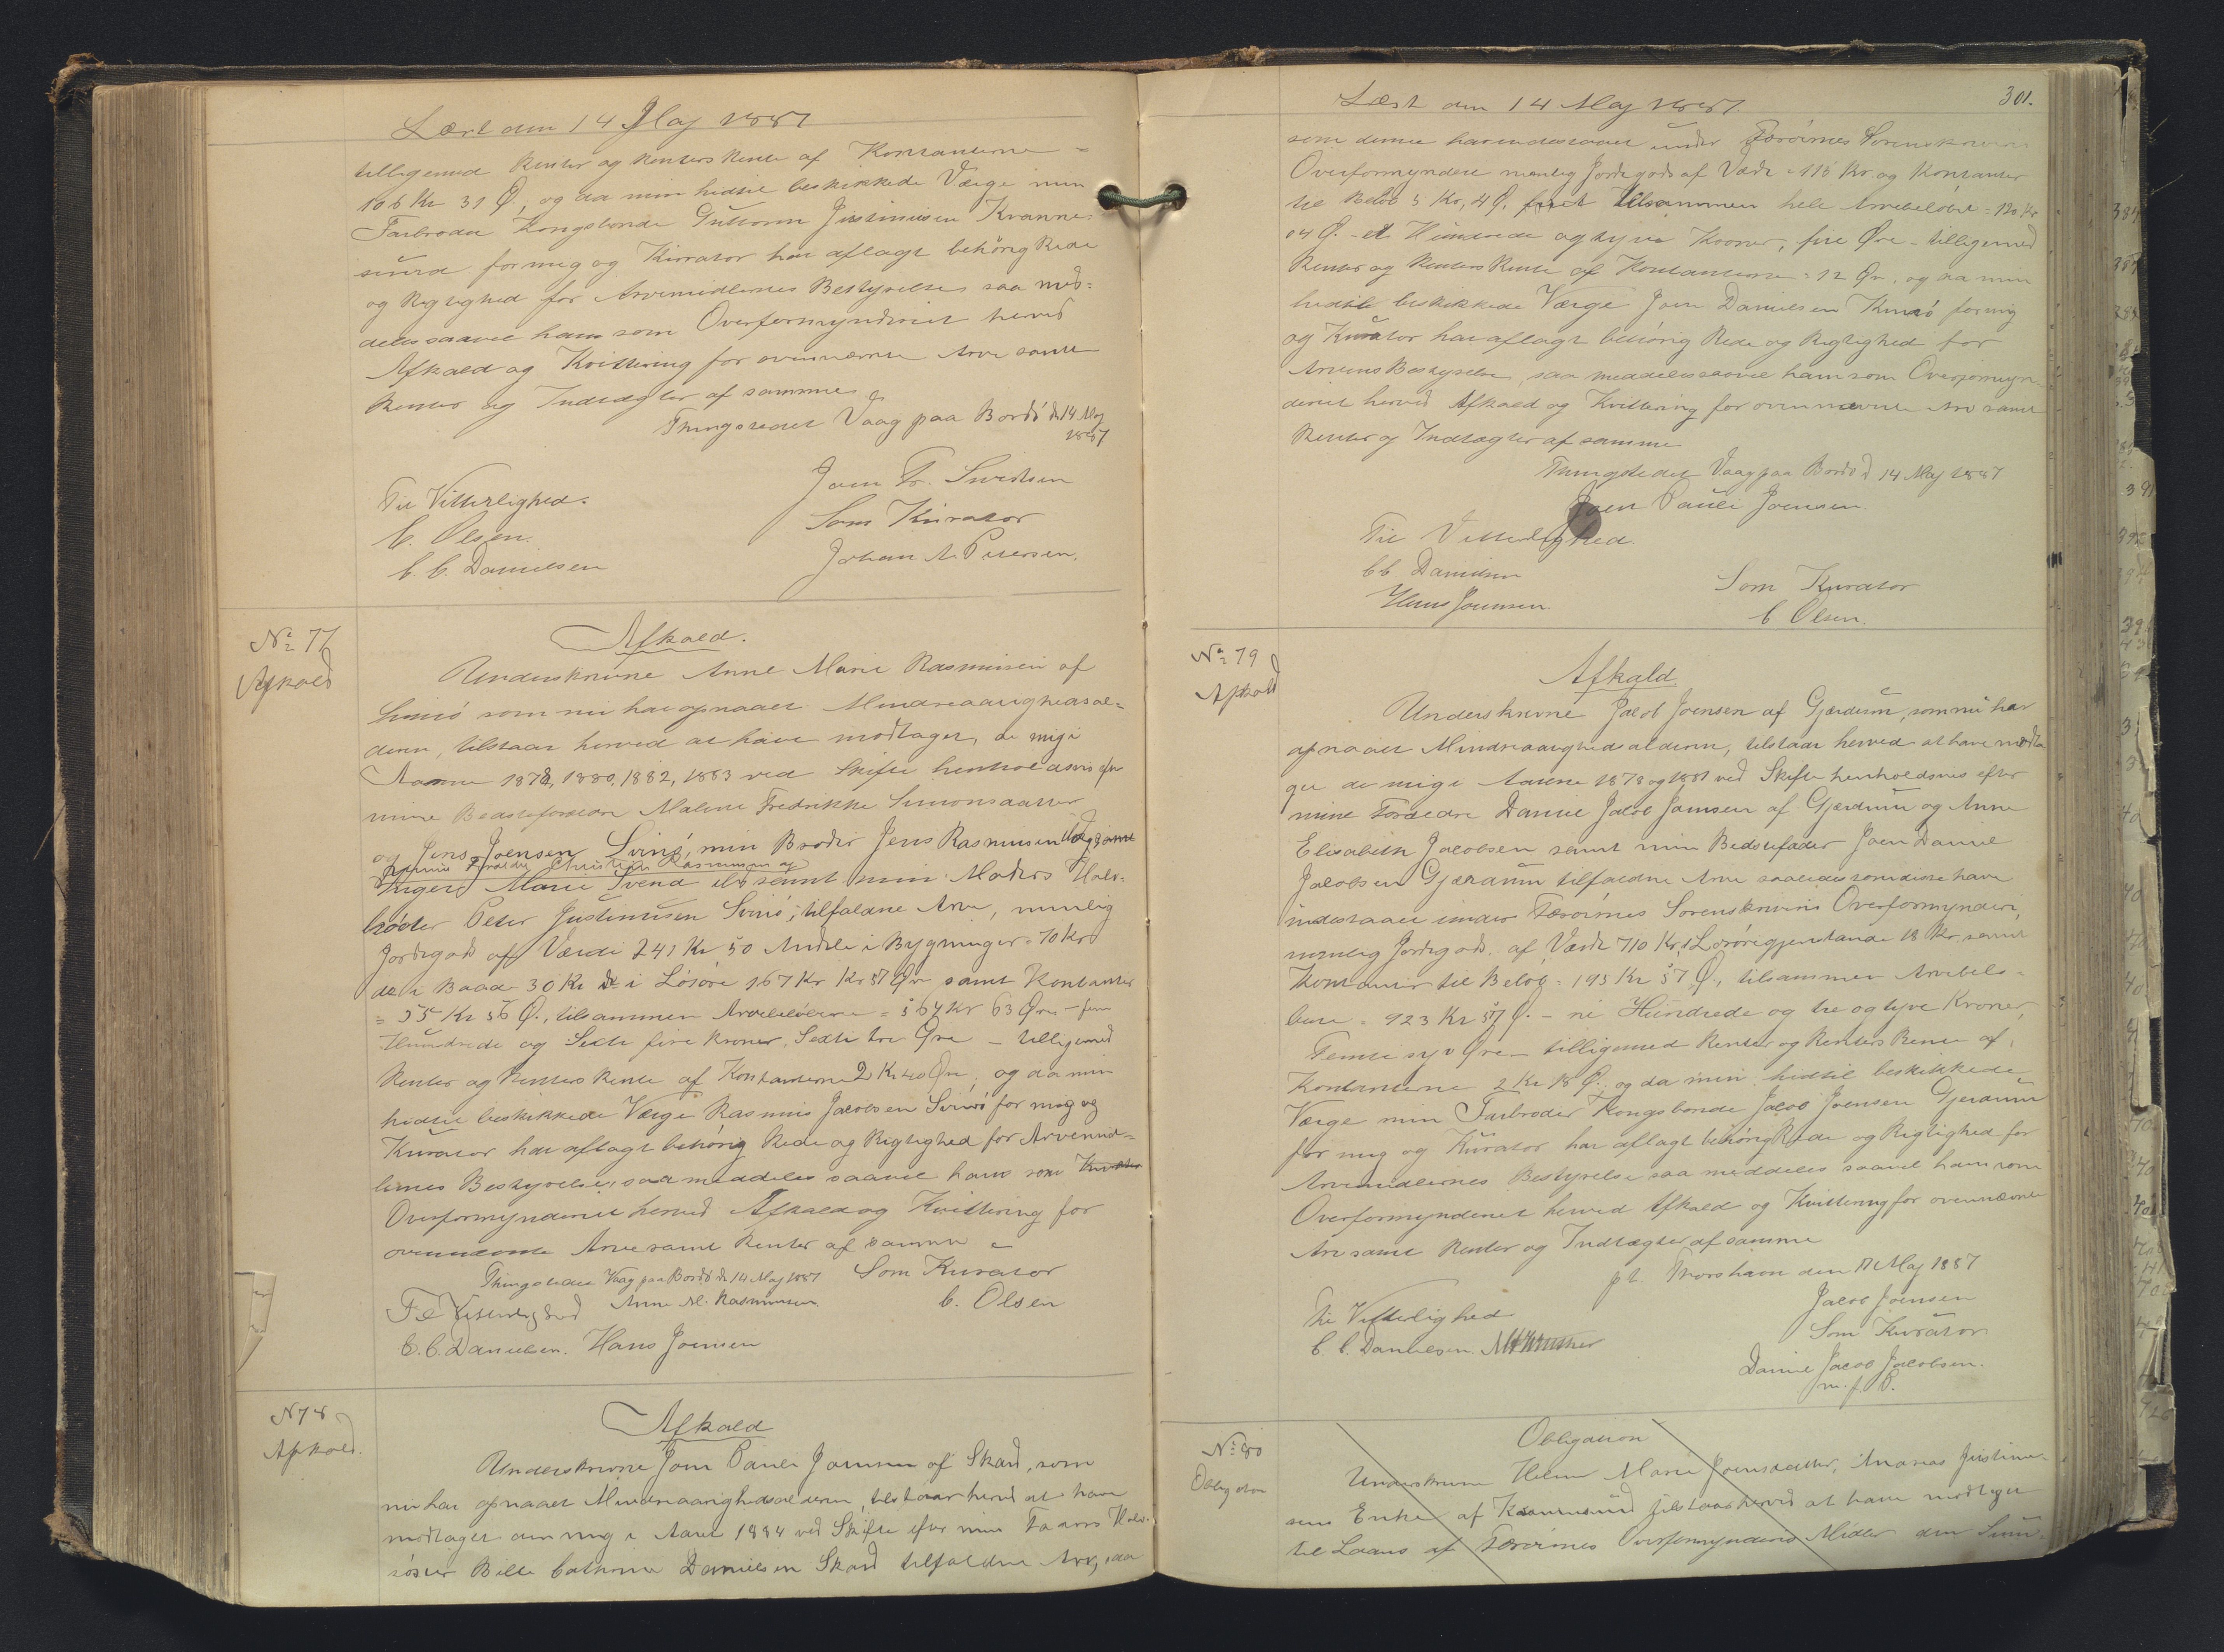 Læst den 14 Maj 1887
tillegemed Renter og Renters Rente af Kontanterne =
106 Kr 31 Ø., og da min hidtil beskikkede Værge min
Farbroder Kongsbonde Guttorm Justinusen Kvanne-
sund for mig og Kurator har aflagt behörig Rede
og Rigtighed for Arvemidlernes Bestyrelse saa med-
deles saavel ham som Overformynderiet herved
Afkald og Kvittering for ovennævnte Arv samt
Renter og Indtægter af samme
Thingstedet Vaag paa Bordö d 14 Maj
1887
Til Vitterlighed.
C. Olsen.
C. C. Danielsen
Joen Fr.
Som Kurator
Johan A. Petersen.
No 77
Afkald
Afkald.
Underskrevne Anne Marie Rasmussen af
Svinö som nu har opnaaet Mindreaarighedsal-
deren, tilstaar herved at have modtaget, de mig i
Aarene 1878, 1880, 1882, 1883 ved Skifte henholdsvis efter
mine Bedsteforældre Malene Fredrikke Simonsdatter
og Jens Joensen Svinö, min Broder Jens Rasmussen samt
mine Forældre Christian Rasmussen og
Inger Marie Svend samt min Moders Halv-
broder Peter Justinusen Svinö, tilfaldne Arv, nemlig
Jordegods af Værdi 241 Kr 50 Andele i Bygninger = 70 Kr
do i Baade 30 Kr do i Lösöre 167 Kr Kr 57 Øre samt Kontanter
= 55 Kr 56 Ø., tilsammen Arvebelöbene = 564 Kr 63 Øre - fem
Hundrede og Sexti fire Kroner, Sexti tre Øre - tilligemed
Renter og Renters Rente af Kontanterne 2 Kr 40 Øre, og da min
hidtil beskikkede Værge Rasmus Jacobsen Svinö for mig og
Kurator har aflagt behörig Rede og Rigtighed for Arvemid-
lernes Bestyrelse, saa meddeles saavel ham som Kurator
Overformynderiet herved Afkald og Kvittering for
ovennævnte Arv samt Renter af samme
Thingstedet Vaag paa Bordö d 14 Maj 1887 Som Kurator
Til Vitterlighed Anne M. Rasmussen. C. Olsen
C. C. Danielsen. Hans Joensen
N 78
Afkald.
Afkald
Underskrevne Joen Pauli Joensen af Skard, som
nu har opnaaet Mindreaarighedsalderen, tilstaar herved at have
modtaget den mig i Aaret 1884 ved Skifte efter min Faders Halv-
söster Bille Cathrine Danielsen Skard tilfaldne Arv, saa
301.
Læst den 14 Maj 1887.
som denne har indestaaet under Færöernes Sorenskriveri
Overformynderi nemlig Jordegods af Værdi = 115 Kr. og Kontanter
til Belöb 5 Kr, 4 Ø. tilsammen hele Arvebelöbet = 120 Kr
04 Ø. - et Hundrede og tyve Kroner, fire Øre - tilligemed
Renter og Renters Rente af Kontanterne = 12 Ør, og da min
hidtil beskikkede Værge Joen Danielsen Kunö for mig
og Kurator har aflagt behörig Rede og Rigtighed for
Arvens Bestyrelse, saa meddeles saavel ham som Overformyn-
deriet herved Afkald og Kvittering for ovennævnte Arv samt
Renter og Indtægter af samme
Thingstedet Vaag paa Bordö d 14 Maj 1887
Joen Pauli Joensen.
Til Vitterlighed.
C C Danielsen
Hans Joensen.
Som Kurator
C Olsen.
No 79
Afkald
Afkald
Underskrevne Jacob Joensen af Gjerdum, som nu har
opnaaet Mindreaarighedsalderen, tilstaar herved at have modta
get de mig i Aarene 1878 og 1881 ved Skifte henholdsvis efter
mine Forældre Daniel Jacob Joensen af Gjerdum og Anne
Elisabeth Jacobsen samt min Bedstefader Joen Daniel
Jacobsen Gjerdum tilfaldne Arv saaledes som disse have
indestaaet under Færöernes Sorenskriveris Overformynderi,
nemlig Jordegods af Værdi 710 Kr, i Lösöregjenstande 18 Kr, samt
Kontanter til Belöb = 195 Kr 57 Ø., tilsammen Arvebelö-
bene = 923 Kr 57 Ø. - ni Hundrede og tre og tyve Kroner,
Femti syv Øre - tilligemed Renter og Renters Rente af
Kontanterne 2 Kr 18 Ø., og da min hidtil beskikkede
Værge min Farbroder Kongsbonde Jacob Joensen Gjerdum
for mig og Kurator har aflagt behörig Rede og Rigtighed for
Arvemidlernes Bestyrelse saa meddeles saavel ham som
Overformynderiet herved Afkald og Kvittering for ovennævnte
Arv samt Renter og Indtægter af samme
pt. Thorshavn den 17 Maj 1887
Jacob Joensen
Til Vitterlighed
Som Kurator
C. C. Danielsen.
Daniel Jacob Jacobsen.
m. f. P.
No 80
Obligation
Obligation
Underskrevne Helene Marie Joensdatter, Ananias Justinu-
sens Enke af Kvannesund tilstaar herved at have modtaget
til Laans af Færöernes Overformynderis Midler den Sum